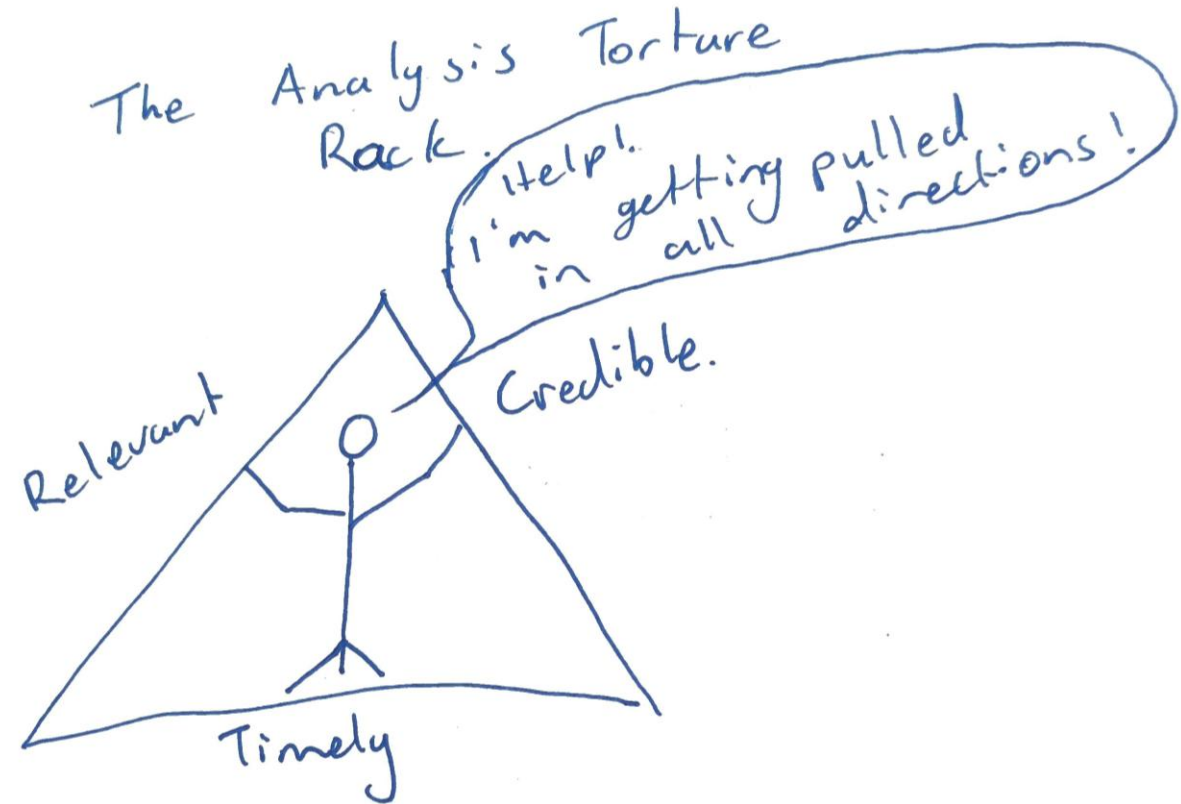 The Analysis Torture
Rack.
Help!
I'm getting pulled
in all directions!
Relevant
Credible.
Timely